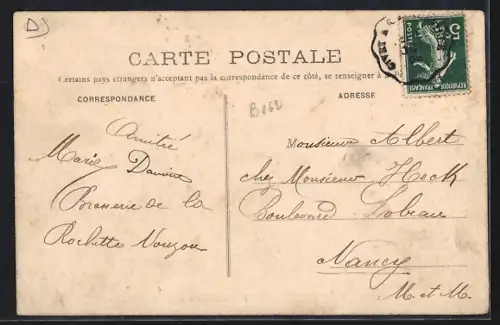 D
CARTE POSTALE
Certains pays étrangers n'acceptant pas la correspondance de ce côté, se renseigner à
CORRESPONDANCE
ADRESSE
B062
Amitié
Marie
Brasserie de la
Rochette Nouzon
Monsieur Albert
chez Monsieur Heck
Boulevard Lobau
Nancy
M. et M.
GIVET A
5c
POSTES
REPUBLIQUE FRANÇAISE